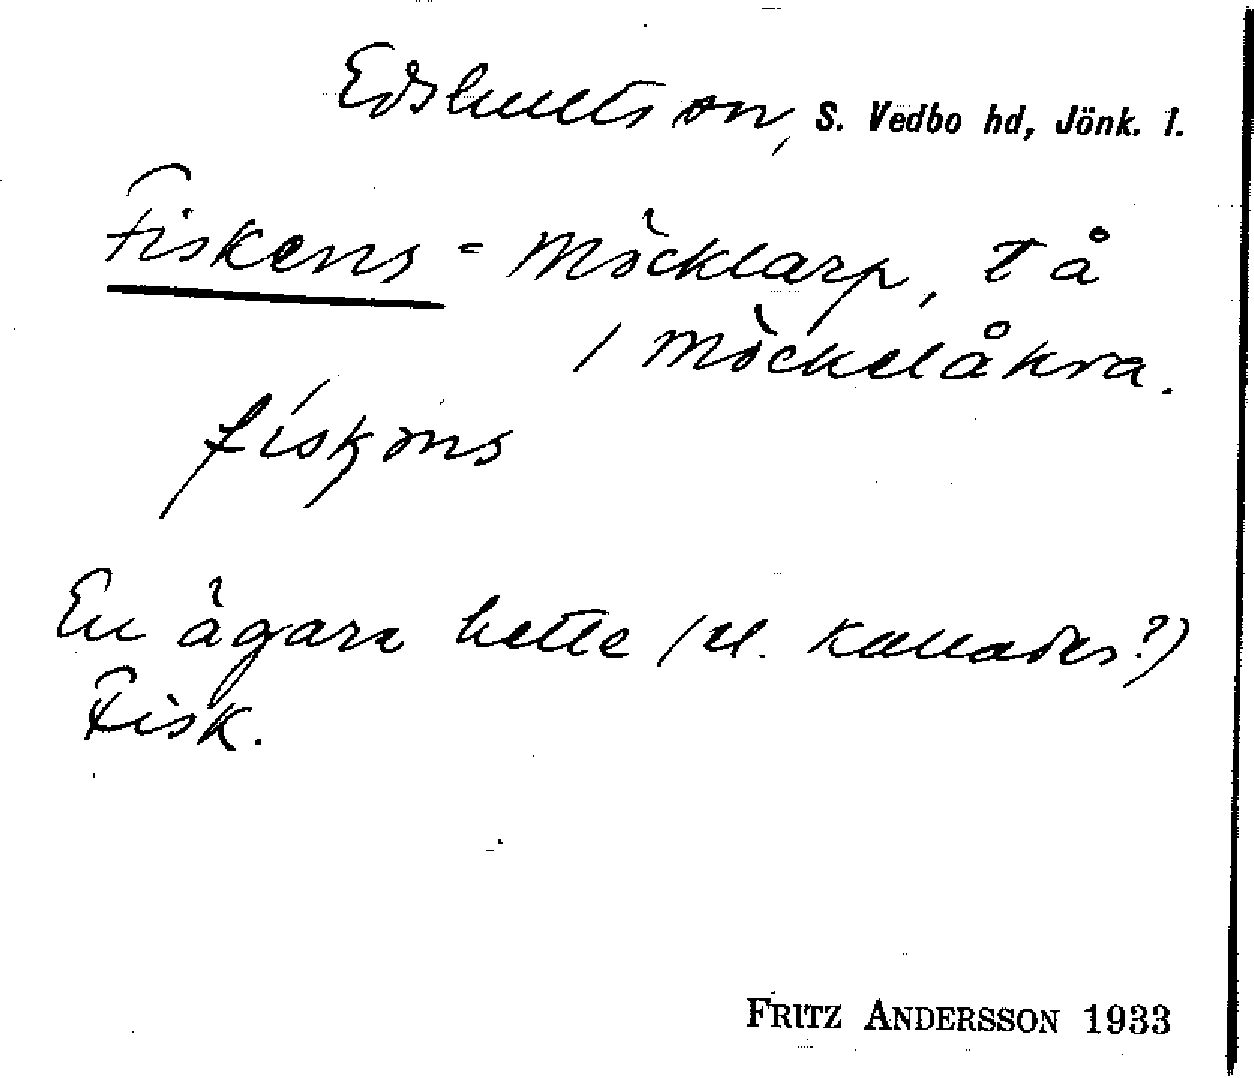 Edshults sn, S. Vedbo hd, Jönk. l.
Fiskens = Möcklarp, t å
/ Möckelåkra.
fiskəns
En ägare hette (el. kallades?)
Fisk.
FRITZ ANDERSSON 1933